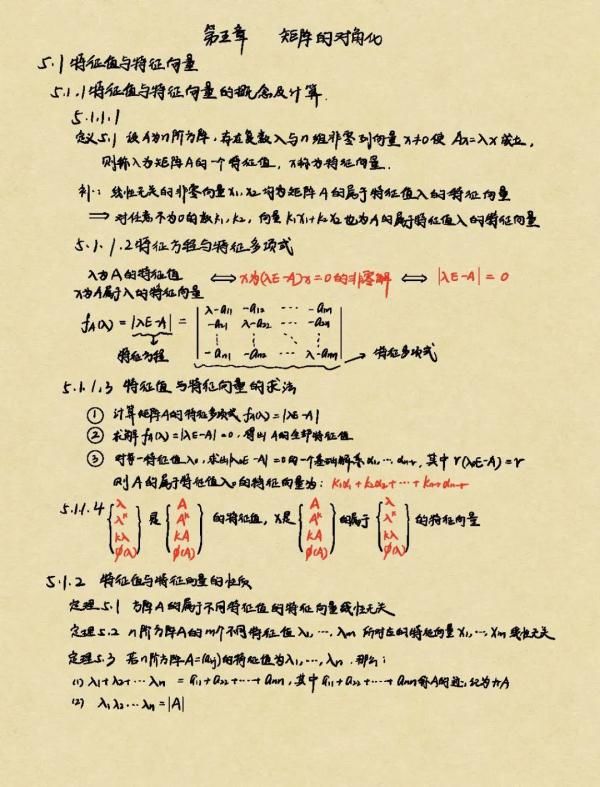 第五章 矩阵的对角化
5.1 特征值与特征向量
5.1.1 特征值与特征向量的概念及计算.
5.1.1.1
定义5.1 设A为n阶方阵,存在复数λ与n组非零列向量x≠0使 Ax=λx 成立,
则称λ为矩阵A的一个特征值, x称为特征向量.
补: 线性无关的非零向量x₁,x₂均为矩阵A的属于特征值λ的特征向量
⟹ 对任意不为0的数k₁,k₂, 向量k₁x₁+k₂x₂也为A的属于特征值λ的特征向量
5.1.1.2 特征方程与特征多项式
λ为A的特征值 ⟺ x为(λE-A)x=0的非零解 ⟺ |λE-A|=0
x为A属于λ的特征向量
f_A(λ) = |λE-A| = | λ-a₁₁ -a₁₂ ⋯ -a₁ₙ
-a₂₁ λ-a₂₂ ⋯ -a₂ₙ
⋮ ⋮ ⋮
-aₙ₁ -aₙ₂ ⋯ λ-aₙₙ |
特征方程 → 特征多项式
5.1.1.3 特征值与特征向量的求法
① 计算矩阵A的特征多项式 f_A(λ)=|λE-A|
② 求解f_A(λ)=|λE-A|=0, 得出A的全部特征值
③ 对每一特征值λ₀, 求出|λ₀E-A|=0的一个基础解系α₁,⋯,αₙ₋ᵣ, 其中 r(λ₀E-A)=r
则A的属于特征值λ₀的特征向量为: k₁α₁+k₂α₂+⋯+kₙ₋ᵣαₙ₋ᵣ
5.1.1.4 {λ λᵏ kλ φ(λ)} 是 {A Aᵏ kA φ(A)} 的特征值, x是 {A Aᵏ kA φ(A)} 的属于 {λ λᵏ kλ φ(λ)} 的特征向量
5.1.2 特征值与特征向量的性质
定理5.1 方阵A的属于不同特征值的特征向量线性无关
定理5.2 n阶方阵A的m个不同特征值λ₁,⋯,λₘ 所对应的特征向量x₁,⋯,xₘ 线性无关
定理5.3 若n阶方阵A=(aᵢⱼ)的特征值为λ₁,⋯,λₙ, 那么:
(1) λ₁+λ₂+⋯λₙ = a₁₁+a₂₂+⋯+aₙₙ, 其中 a₁₁+a₂₂+⋯+aₙₙ称A的迹, 记为trA
(2) λ₁λ₂⋯λₙ=|A|